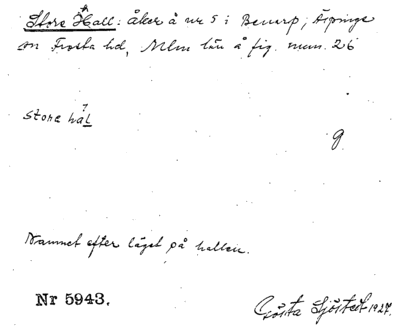 Store Hall: åker å nr 5 i Benarp, Äspinge
sn Frosta hd, Mlm län å fig. num. 26
store hal
g.
Namnet efter läget på hallen.
Nr 5943.
Gösta Sjöstedt 1927.